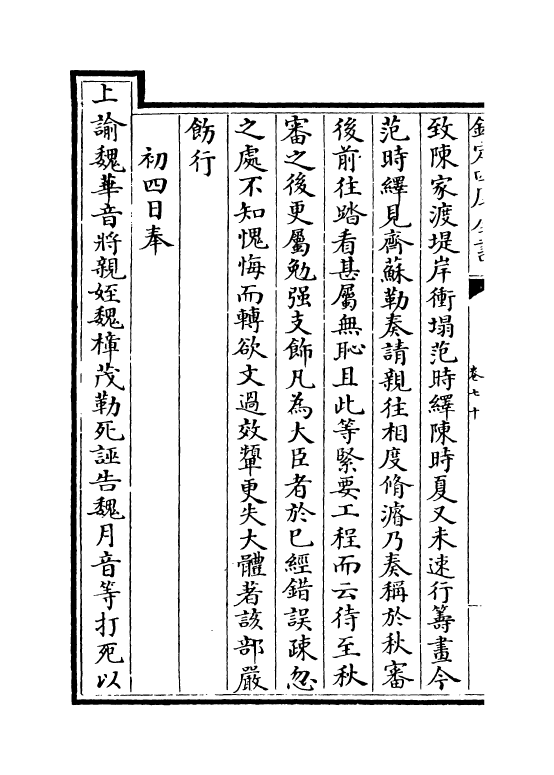 欽定四庫全書
卷七十
致陳家渡堤岸衝塌范時繹陳時夏又未速行籌畫今
范時繹見齊蘇勒奏請親往相度脩濬乃奏稱於秋審
後前往踏看甚屬無恥且此等緊要工程而云待至秋
審之後更屬勉强支飾凡為大臣者於已經錯誤疎忽
之處不知愧悔而轉欲文過效顰更失大體著該部嚴
飭行
初四日奉
上諭魏華音將親姪魏樟茂勒死誣告魏月音等打死以